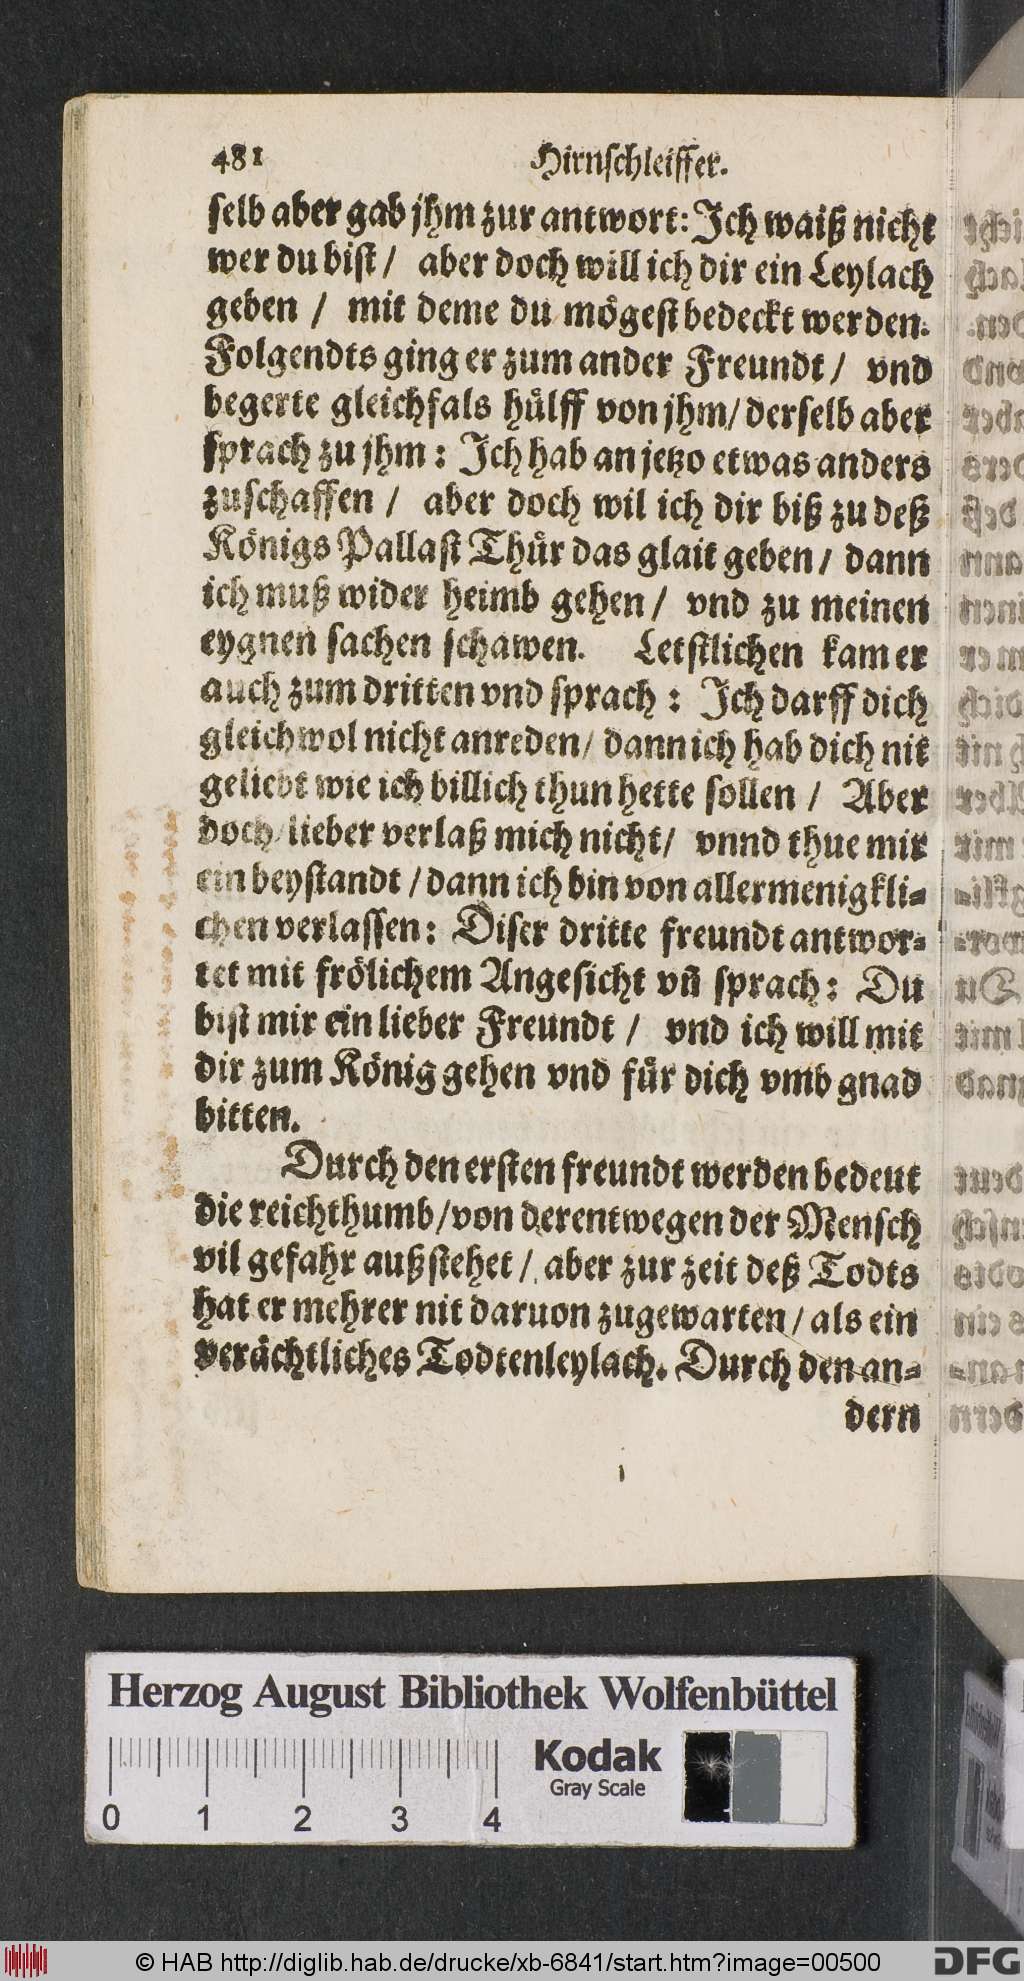 481 Hirnschleiffer.
selb aber gab jhm zur antwort: Jch waiß nicht
wer du bist / aber doch will ich dir ein Leylach
geben / mit deme du mögest bedeckt werden.
Folgendts ging er zum ander Freundt / vnd
begerte gleichfals hülff von jhm / derselb aber
sprach zu jhm : Jch hab an jetzo etwas anders
zuschaffen / aber doch wil ich dir biß zu deß
Königs Pallast Thür das glait geben / dann
ich muß wider heimb gehen / vnd zu meinen
eygnen sachen schawen. Letstlichen kam er
auch zum dritten vnd sprach : Jch darff dich
gleichwol nicht anreden / dann ich hab dich nit
geliebt wie ich billich thun hette sollen / Aber
doch / lieber verlaß mich nicht / vnnd thue mir
ein beystandt / dann ich bin von allermenigkli-
chen verlassen: Diser dritte freundt antwor-
tet mit frölichem Angesicht vñ sprach: Du
bist mir ein lieber Freundt / vnd ich will mit
dir zum König gehen vnd für dich vmb gnad
bitten.
Durch den ersten freundt werden bedeut
die reichthumb / von derentwegen der Mensch
vil gefahr außstehet / aber zur zeit deß Todts
hat er mehrer nit daruon zugewarten / als ein
verächtliches Todtenleylach. Durch den an-
dern
Herzog August Bibliothek Wolfenbüttel
Kodak
Gray Scale
0 1 2 3 4
© HAB http://diglib.hab.de/drucke/xb-6841/start.htm?image=00500
DFG